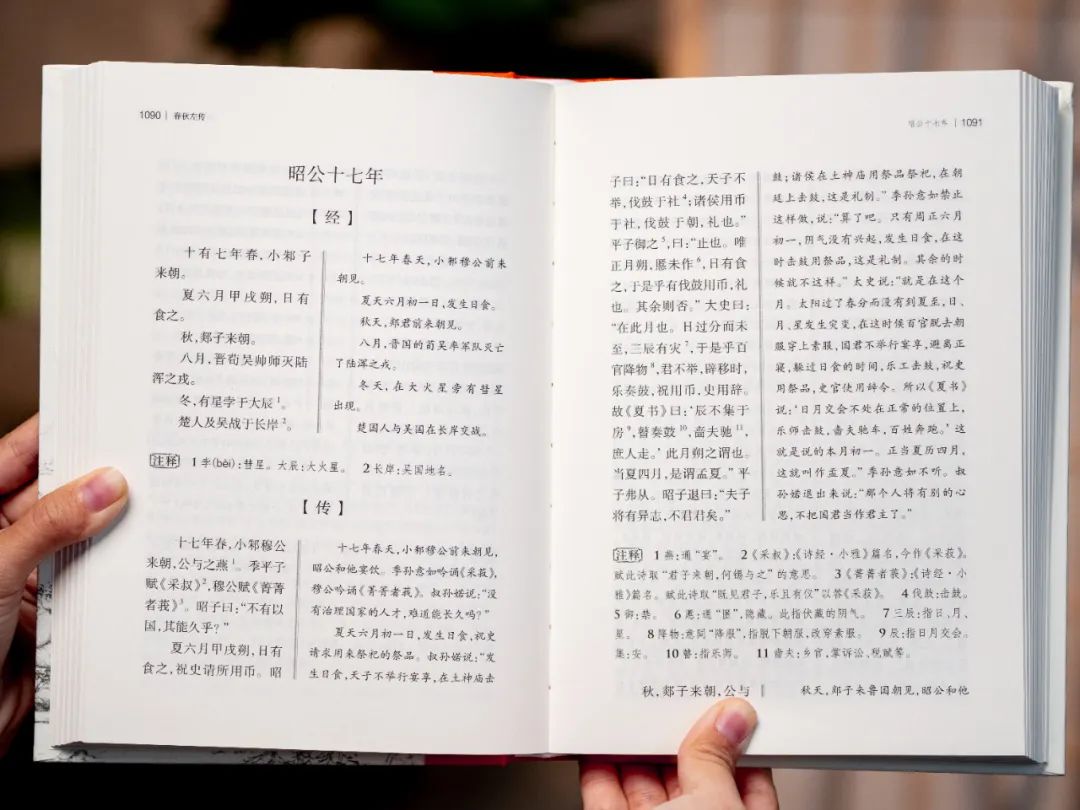 1090 | 春秋左传
昭公十七年
【经】
十有七年春，小邾子
来朝。
夏六月甲戌朔，日有
食之。
秋，郯子来朝。
八月，晋荀吴帅师灭陆
浑之戎。
冬，有星孛于大辰1。
楚人及吴战于长岸2。
十七年春天，小邾穆公前来
朝见。
夏天六月初一日，发生日食。
秋天，郯君前来朝见。
八月，晋国的荀吴率军队灭亡
了陆浑之戎。
冬天，在大火星旁有彗星
出现。
楚国人与吴国在长岸交战。
注释 1 孛(bèi)：彗星。大辰：大火星。 2 长岸：吴国地名。
【传】
十七年春，小邾穆公
来朝，公与之燕1。季平子
赋《采叔》2，穆公赋《菁菁
者莪》3。昭子曰：“不有以
国，其能久乎？”
夏六月甲戌朔，日有
食之，祝史请所用币。昭
十七年春天，小邾穆公前来朝见，
昭公和他宴饮。季孙意如吟诵《采菽》，
穆公吟诵《菁菁者莪》。叔孙婼说：“没
有治理国家的人才，难道能长久吗？”
夏天六月初一日，发生日食，祝史
请求用来祭祀的祭品。叔孙婼说：“发
生日食，天子不举行宴享，在土神庙击
昭公十七年 | 1091
子曰：“日有食之，天子不
举，伐鼓于社4；诸侯用币
于社，伐鼓于朝，礼也。”
平子御之5，曰：“止也。唯
正月朔，慝未作6，日有食
之，于是乎有伐鼓用币，礼
也。其余则否。”大史曰：
“在此月也。日过分而未
至，三辰有灾7，于是乎百
官降物8，君不举，辟移时，
乐奏鼓，祝用币，史用辞。
故《夏书》曰：‘辰不集于
房9，瞽奏鼓10，啬夫驰11，
庶人走。’此月朔之谓也。
当夏四月，是谓孟夏。”平
子弗从。昭子退曰：“夫子
将有异志，不君君矣。”
鼓；诸侯在土神庙用祭品祭祀，在朝
廷上击鼓，这是礼制。”季孙意如禁止
这样做，说：“算了吧。只有周正六月
初一，阴气没有兴起，发生日食，在这
时击鼓用祭品，这是礼制。其余的时
候就不这样。”太史说：“就是在这个
月。太阳过了春分而没有到夏至，日、
月、星发生灾变，在这时候百官脱去朝
服穿上素服，国君不举行宴享，避离正
寝，躲过日食的时间，乐工击鼓，祝史
用祭品，史官使用辞令。所以《夏书》
说：‘日月交会不处在正常的位置上，
乐师击鼓，啬夫驰车，百姓奔跑。’这
就是说的本月初一。正当夏历四月，
这就叫作孟夏。”季孙意如不听。叔
孙婼退出来说：“那个人将有别的心
思，不把国君当作君主了。”
注释 1 燕：通“宴”。 2 《采叔》：《诗经·小雅》篇名，今作《采菽》。
赋此诗取“君子来朝，何锡与之”的意思。 3 《菁菁者莪》：《诗经·小
雅》篇名。赋此诗取“既见君子，乐且有仪”以答《采菽》。 4 伐鼓：击鼓。
5 御：禁。 6 慝：通“匿”，隐藏。此指伏藏的阴气。 7 三辰：指日、月、
星。 8 降物：意同“降服”，指脱下朝服，改穿素服。 9 辰：指日月交会。
集：安。 10 瞽：指乐师。 11 啬夫：乡官，掌诉讼、税赋等。
秋，郯子来朝，公与
秋天，郯子来鲁国朝见，昭公和他